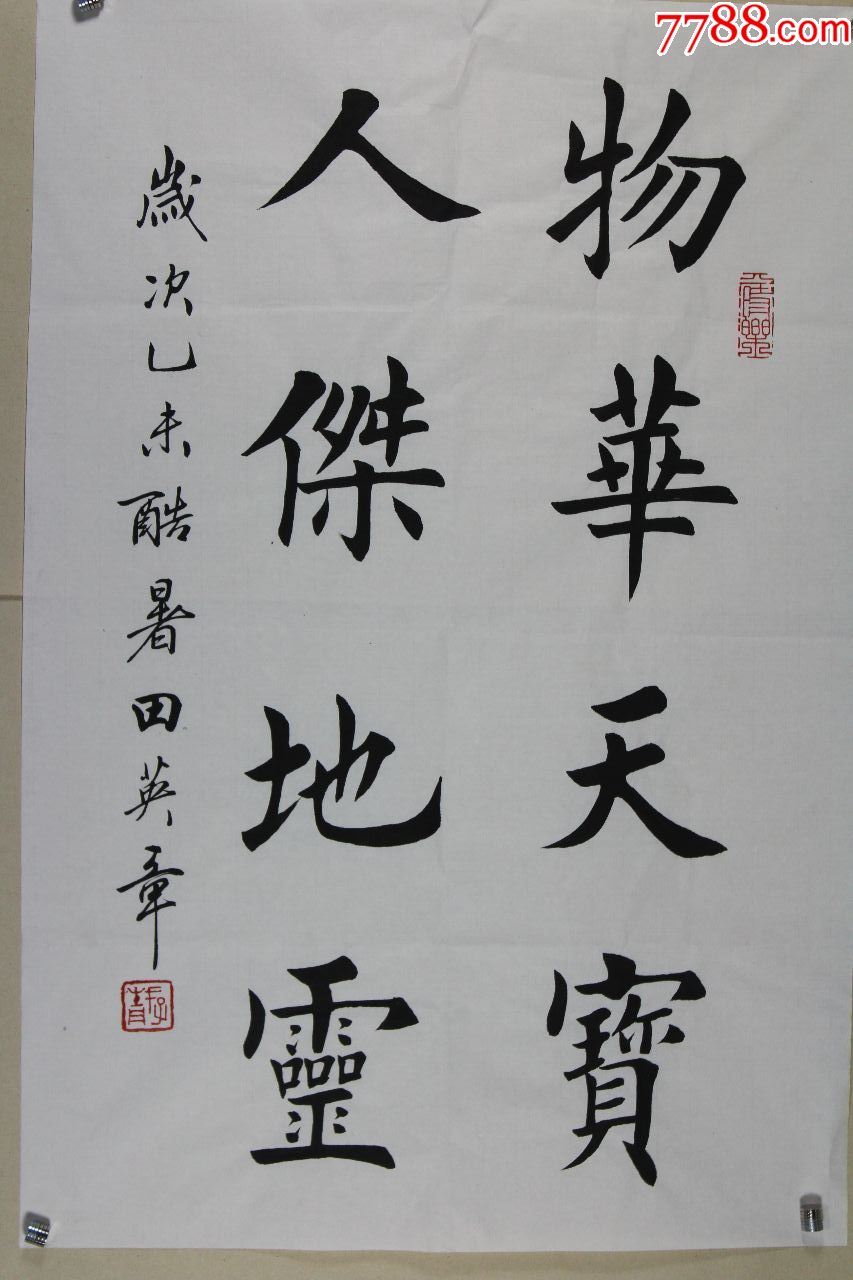 7788.com
物華天寶
人傑地靈
歲次乙未酷暑田英章